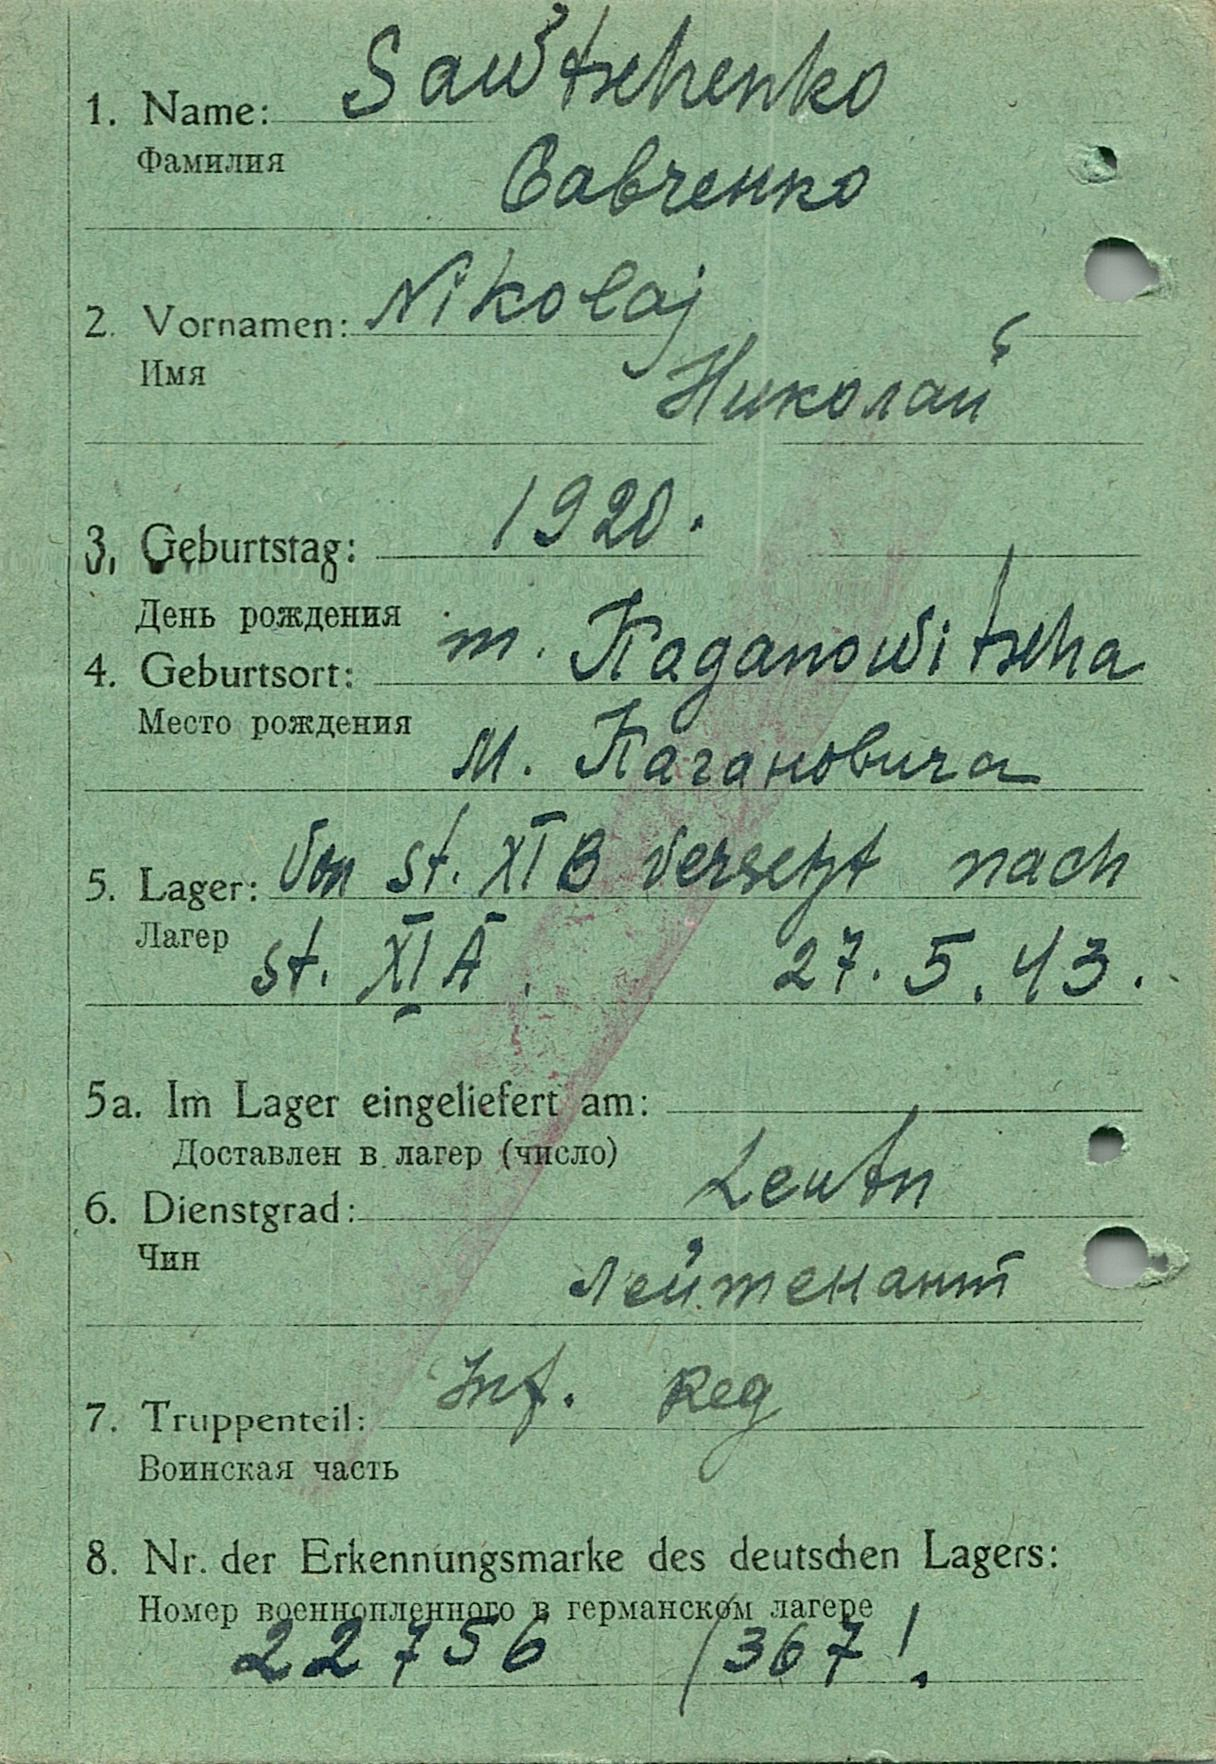 1. Name: Sawtschenko
Фамилия Савченко
2. Vornamen: Nikolaj
Имя Николай
3. Geburtstag: 1920.
День рождения
4. Geburtsort: m. Kaganowitscha
Место рождения
м. Кагановича
5. Lager: Von St. XI B versetzt nach
Лагер St. XI A. 27.5.43.
5a. Im Lager eingeliefert am:
Доставлен в лагер (число)
6. Dienstgrad: Leutn
Чин лейтенант
7. Truppenteil: Inf. Reg
Воинская часть
8. Nr. der Erkennungsmarke des deutschen Lagers:
Номер военнопленного в германском лагере
22756 /367!